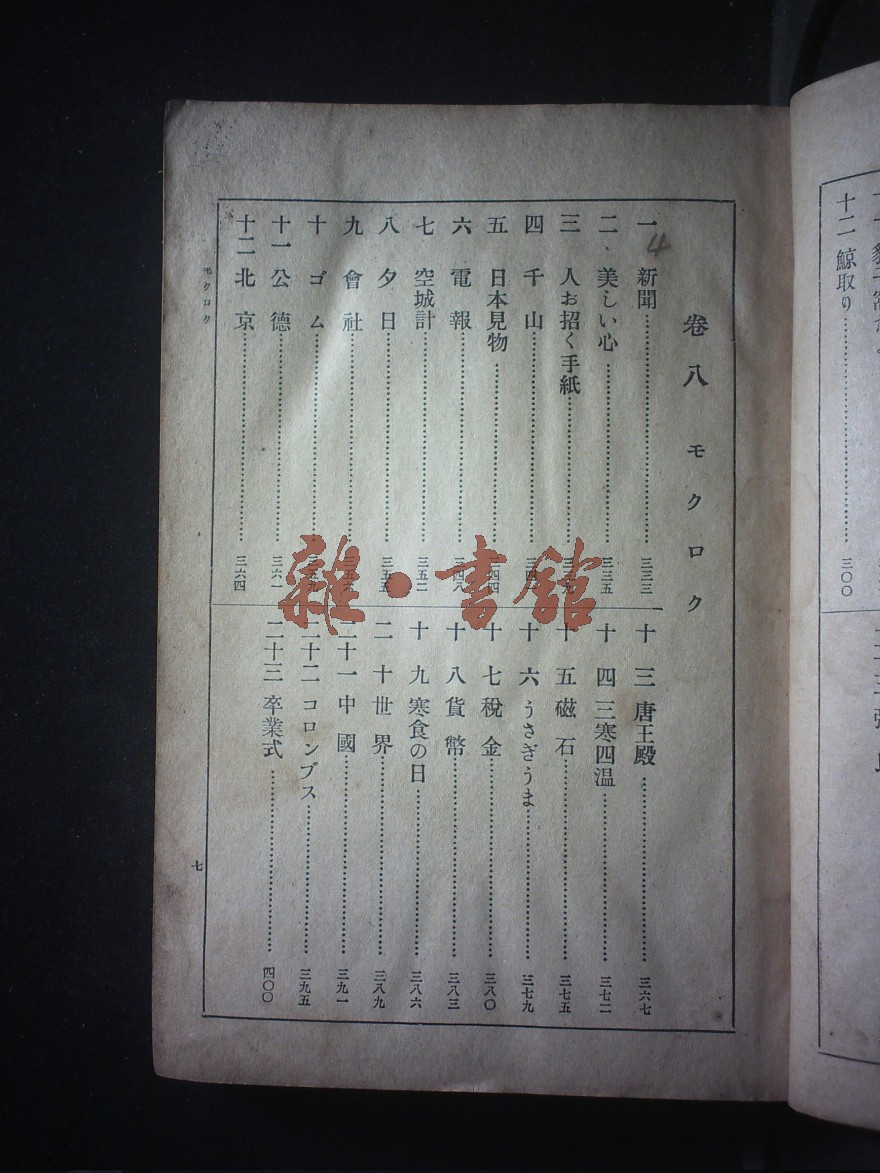 卷八 モクロク
一 新聞…………三三三
二 美しい心…………三三五
三 人お招く手紙…………三三九
四 千山…………三四
五 日本見物…………三四四
六 電報…………三四八
七 空城計…………三五二
八 夕日…………三五五
九 會社…………三五六
十 ゴム…………三五九
十一 公德…………三六一
十二 北京…………三六四
十三 唐王殿…………三六七
十四 三寒四溫…………三七二
十五 磁石…………三七五
十六 うさぎうま…………三七九
十七 稅金…………三八〇
十八 貨幣…………三八三
十九 寒食の日…………三八六
二十 世界…………三八九
二十一 中國…………三九一
二十二 コロンブス…………三九五
二十三 卒業式…………四〇〇
モクロク
七
4
雜·書館
十二 鯨取り…………三〇〇